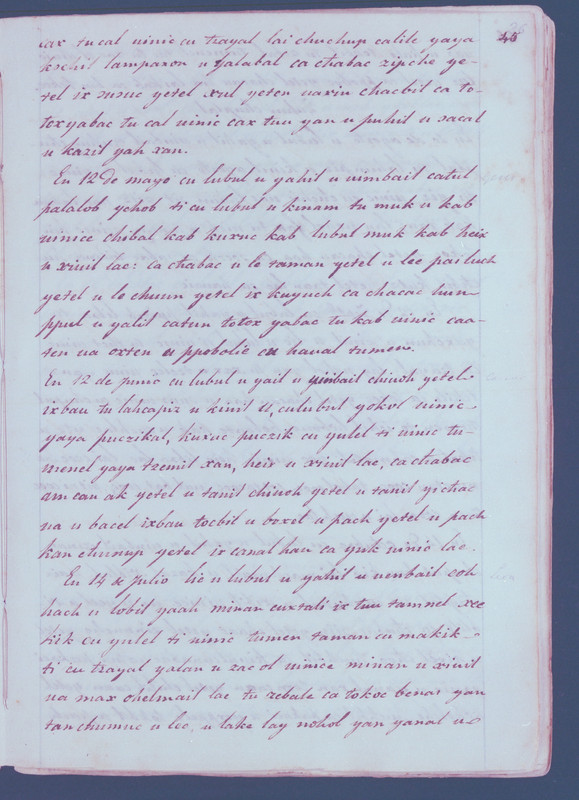 45
cax tu cal uinic cu tzayal lai chuchup calile yaya
kochil tamparon u yalabal ca chabac zipche ye-
tel ix susuc yetel xul yeten uaxin chacbil ca to-
tox yabac tu cal uinic cax tuu yan u puhil u sacal
u kazil yah xan.
En 12 de mayo cu lubul u yahil u uimbail catul
palalob ychob ti cu lubul u kinam tu muk u kab
uinice chibal kab kuxuc kab lubul muk kab heix
u xiuil lac: ca chabac u le taman yetel u lee pais luch
yetel u le chuun yetel ix kuyuch ca chacac hun
ppul u yalil catun totox yabac tu kab uinic caa-
ten ua oxten u ppobolie cu haual tumen.
En 12 de junio cu lubul u yail u uimbail chiuoh yetel
ixbau tu lahcapiz u kinil U, culubul yokol uinic
yaya puczikal, kuxuc puczik cu yulel ti uinic tu-
menel yaya tzemil xan, heix u xiuil lac, ca chabac
am can ak yetel u tanil chiuoh yetel u tanil yichac
ua u bacel ixbau tocbil u boxel u pach yetel u pach
kan chunup yetel ix canal hau ca yuk uinic lae.
En 14 de julio lic u lubul u yahil u uembail coh
hach u lobil yaah minan cuxtali ix tuu tamnel xee
kik cu yulel ti uinic tumen taman cu makik
ti cu tzayal yalan u zac ol uinice minan u xiuil
ua max ohelmail lae tu zebale ca tokoc benas yan
tan chumuc u lec, u take lay nohol yan yanal u